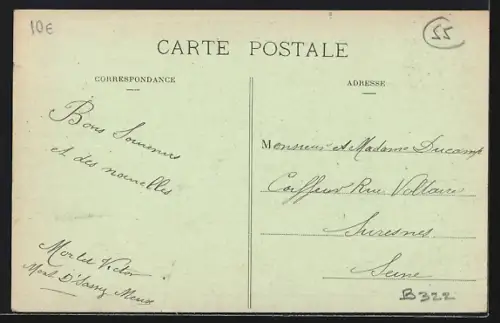 10€
55
CARTE POSTALE
CORRESPONDANCE
ADRESSE
Bons Souvenirs
et des nouvelles
Monsieur et Madame Ducamp
Coiffeur Rue Voltaire
Suresnes
Seine
Victor
Mont D' Meuse
B322